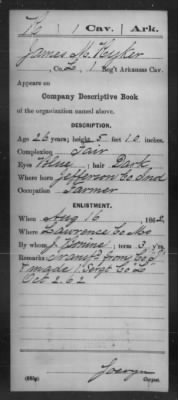 K | 1 Cav. | Ark.
James M. Kyker
Co. L, 1 Reg't Arkansas Cav.
Appears on
Company Descriptive Book
of the organization named above.
DESCRIPTION.
Age 26 years; height 5 feet 10 inches.
Complexion Fair
Eyes Blue; hair Dark
Where born Jefferson Co Ind
Occupation Farmer
ENLISTMENT.
When Aug 16, 1862.
Where Lawrence Co Mo
By whom J; term 3 y'rs.
Remarks Transf'd from Co
& made 1 Sergt Co L
Oct 2.62
Copyist.